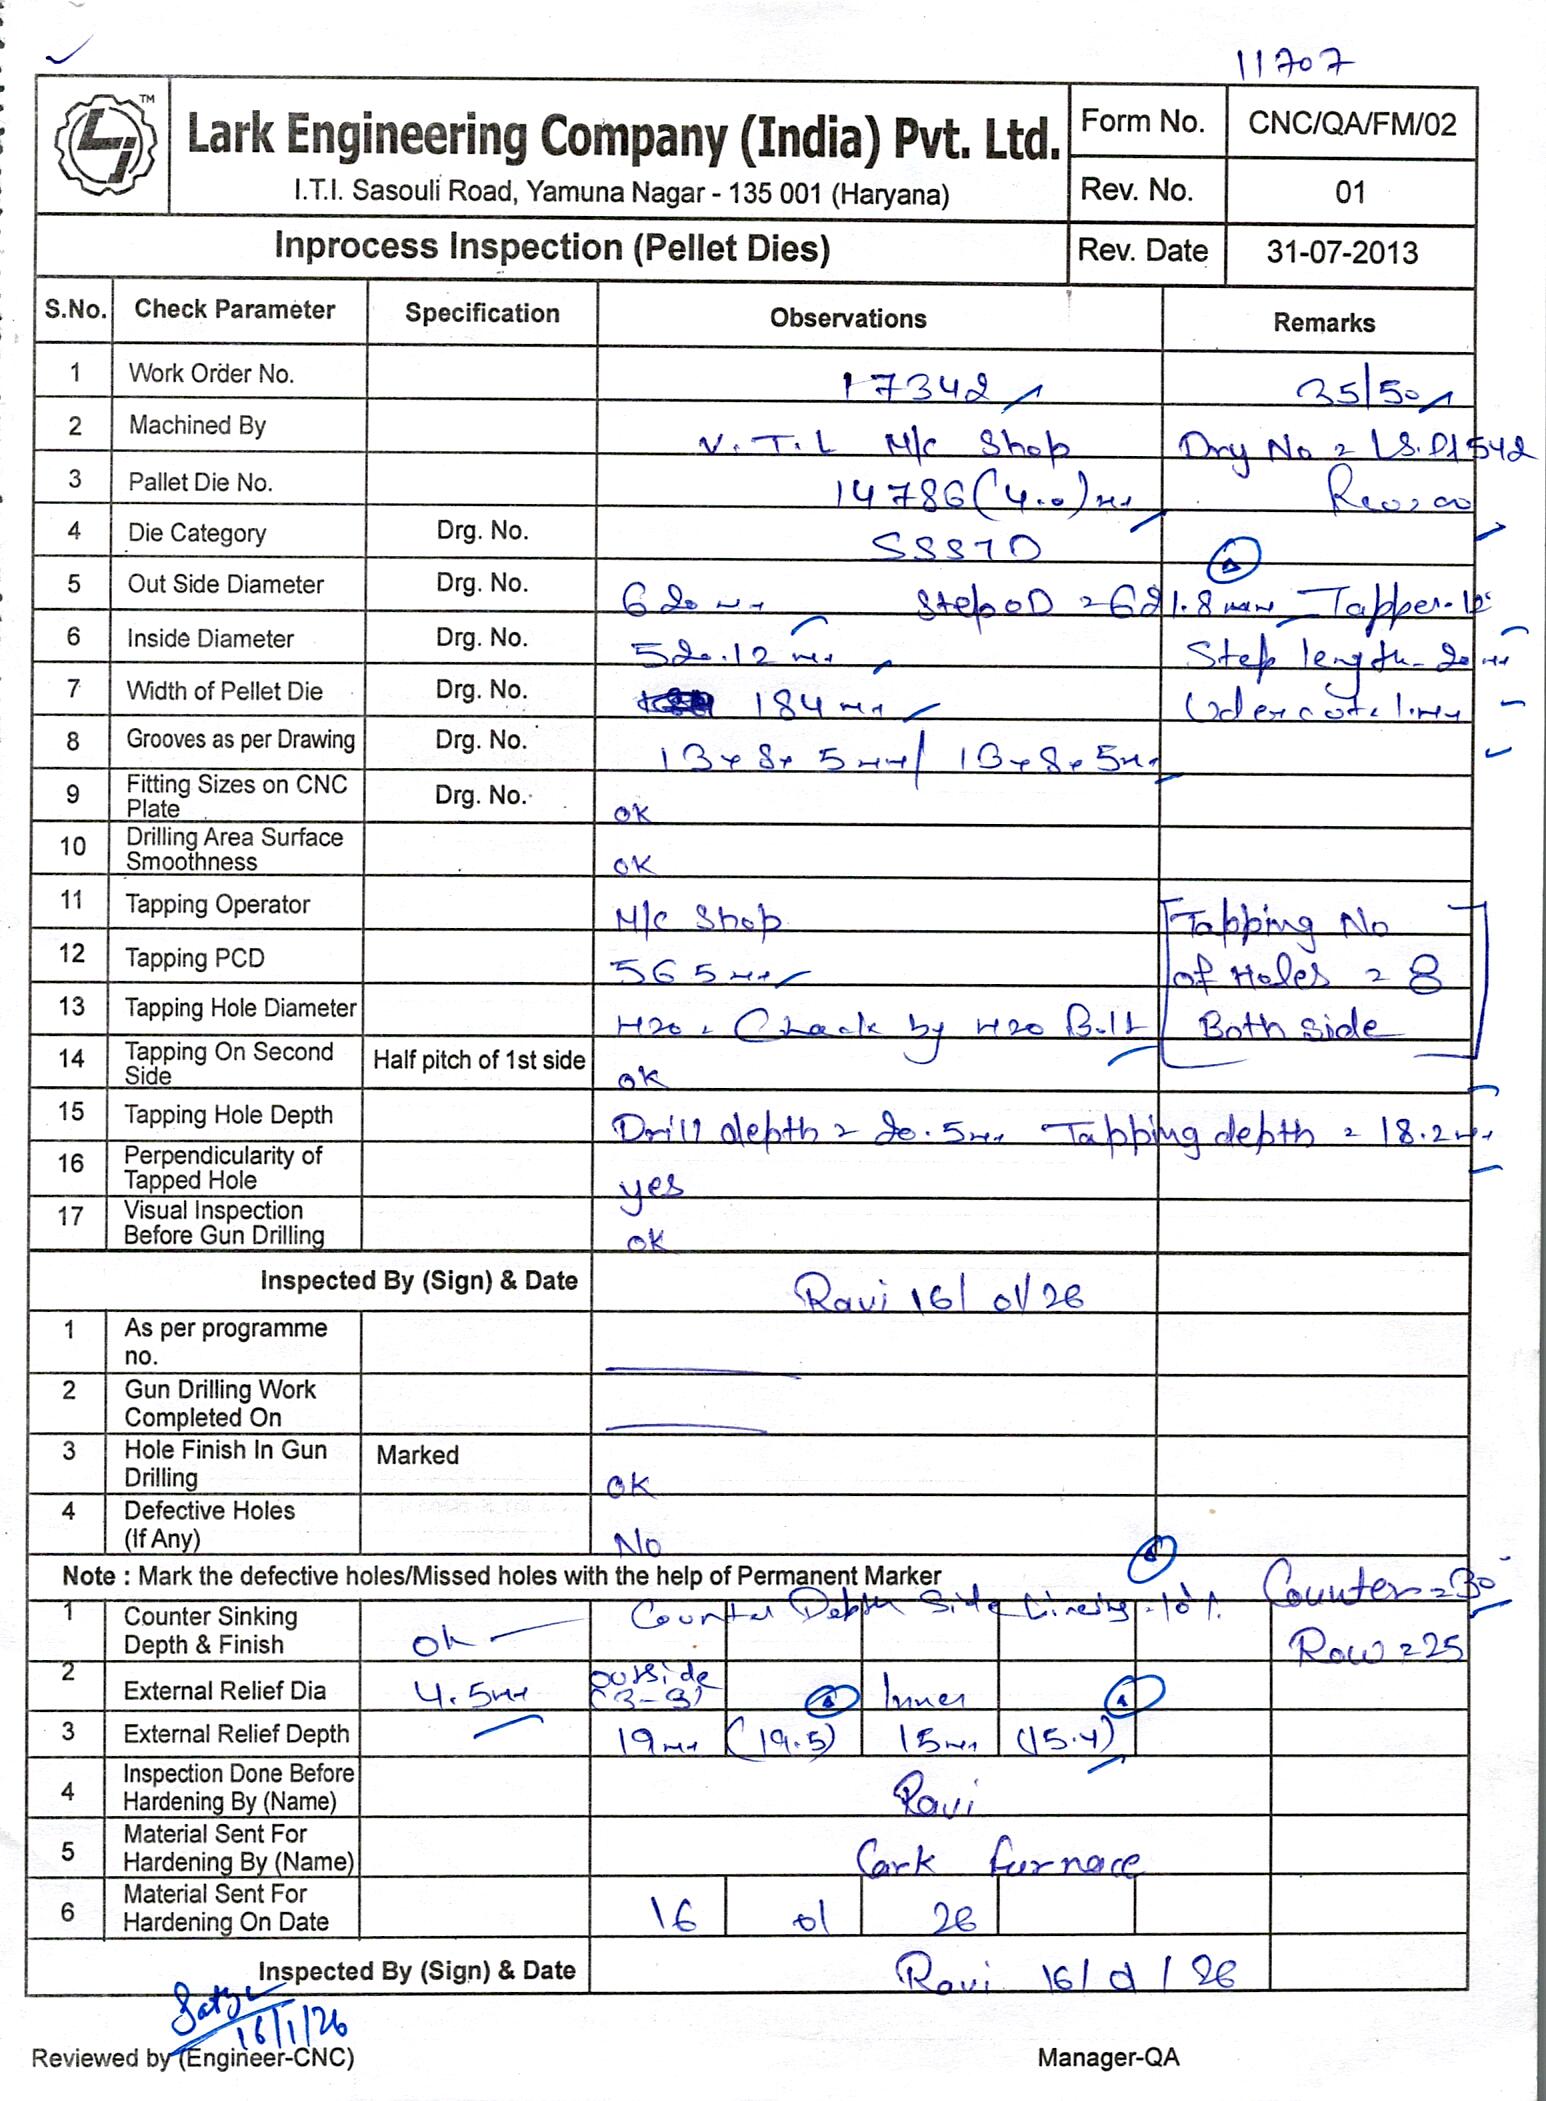 11707
TM
Lark Engineering Company (India) Pvt. Ltd.
I.T.I. Sasouli Road, Yamuna Nagar - 135 001 (Haryana)
Form No. CNC/QA/FM/02
Rev. No. 01
Inprocess Inspection (Pellet Dies)
Rev. Date 31-07-2013
S.No. Check Parameter Specification Observations Remarks
1 Work Order No. 17342 35/50
2 Machined By V.T.L M/c Shop Drg No = LS.D1542
3 Pallet Die No. 14786 (4.0) mm Rev=00
4 Die Category Drg. No. SS870
5 Out Side Diameter Drg. No. 620 mm Step OD = 621.8 mm Tapper-12°
6 Inside Diameter Drg. No. 520.12 mm Step length-20 mm
7 Width of Pellet Die Drg. No. 184 mm
8 Grooves as per Drawing Drg. No. 13x8x5mm/ 13x8x5mm
9 Fitting Sizes on CNC Plate Drg. No. ok
10 Drilling Area Surface Smoothness ok
11 Tapping Operator M/c Shop Tapping No
12 Tapping PCD 565mm of Holes = 8
13 Tapping Hole Diameter M20 - Check by M20 Bolt Both side
14 Tapping On Second Side Half pitch of 1st side ok
15 Tapping Hole Depth Drill depth = 20.5mm Tapping depth = 18.2mm
16 Perpendicularity of Tapped Hole yes
17 Visual Inspection Before Gun Drilling ok
Inspected By (Sign) & Date Ravi 16/01/26
1 As per programme no.
2 Gun Drilling Work Completed On
3 Hole Finish In Gun Drilling Marked ok
4 Defective Holes (If Any) No
Note : Mark the defective holes/Missed holes with the help of Permanent Marker
Counter = 30°
1 Counter Sinking Depth & Finish ok Counter Depth Side Row = 25
2 External Relief Dia 4.5mm outside (3-3) Inner
3 External Relief Depth 19mm (19.5) 15mm (15.4)
4 Inspection Done Before Hardening By (Name) Ravi
5 Material Sent For Hardening By (Name) Lark furnace
6 Material Sent For Hardening On Date 16 01 26
Inspected By (Sign) & Date Ravi 16/01/26
16/1/26
Reviewed by (Engineer-CNC) Manager-QA